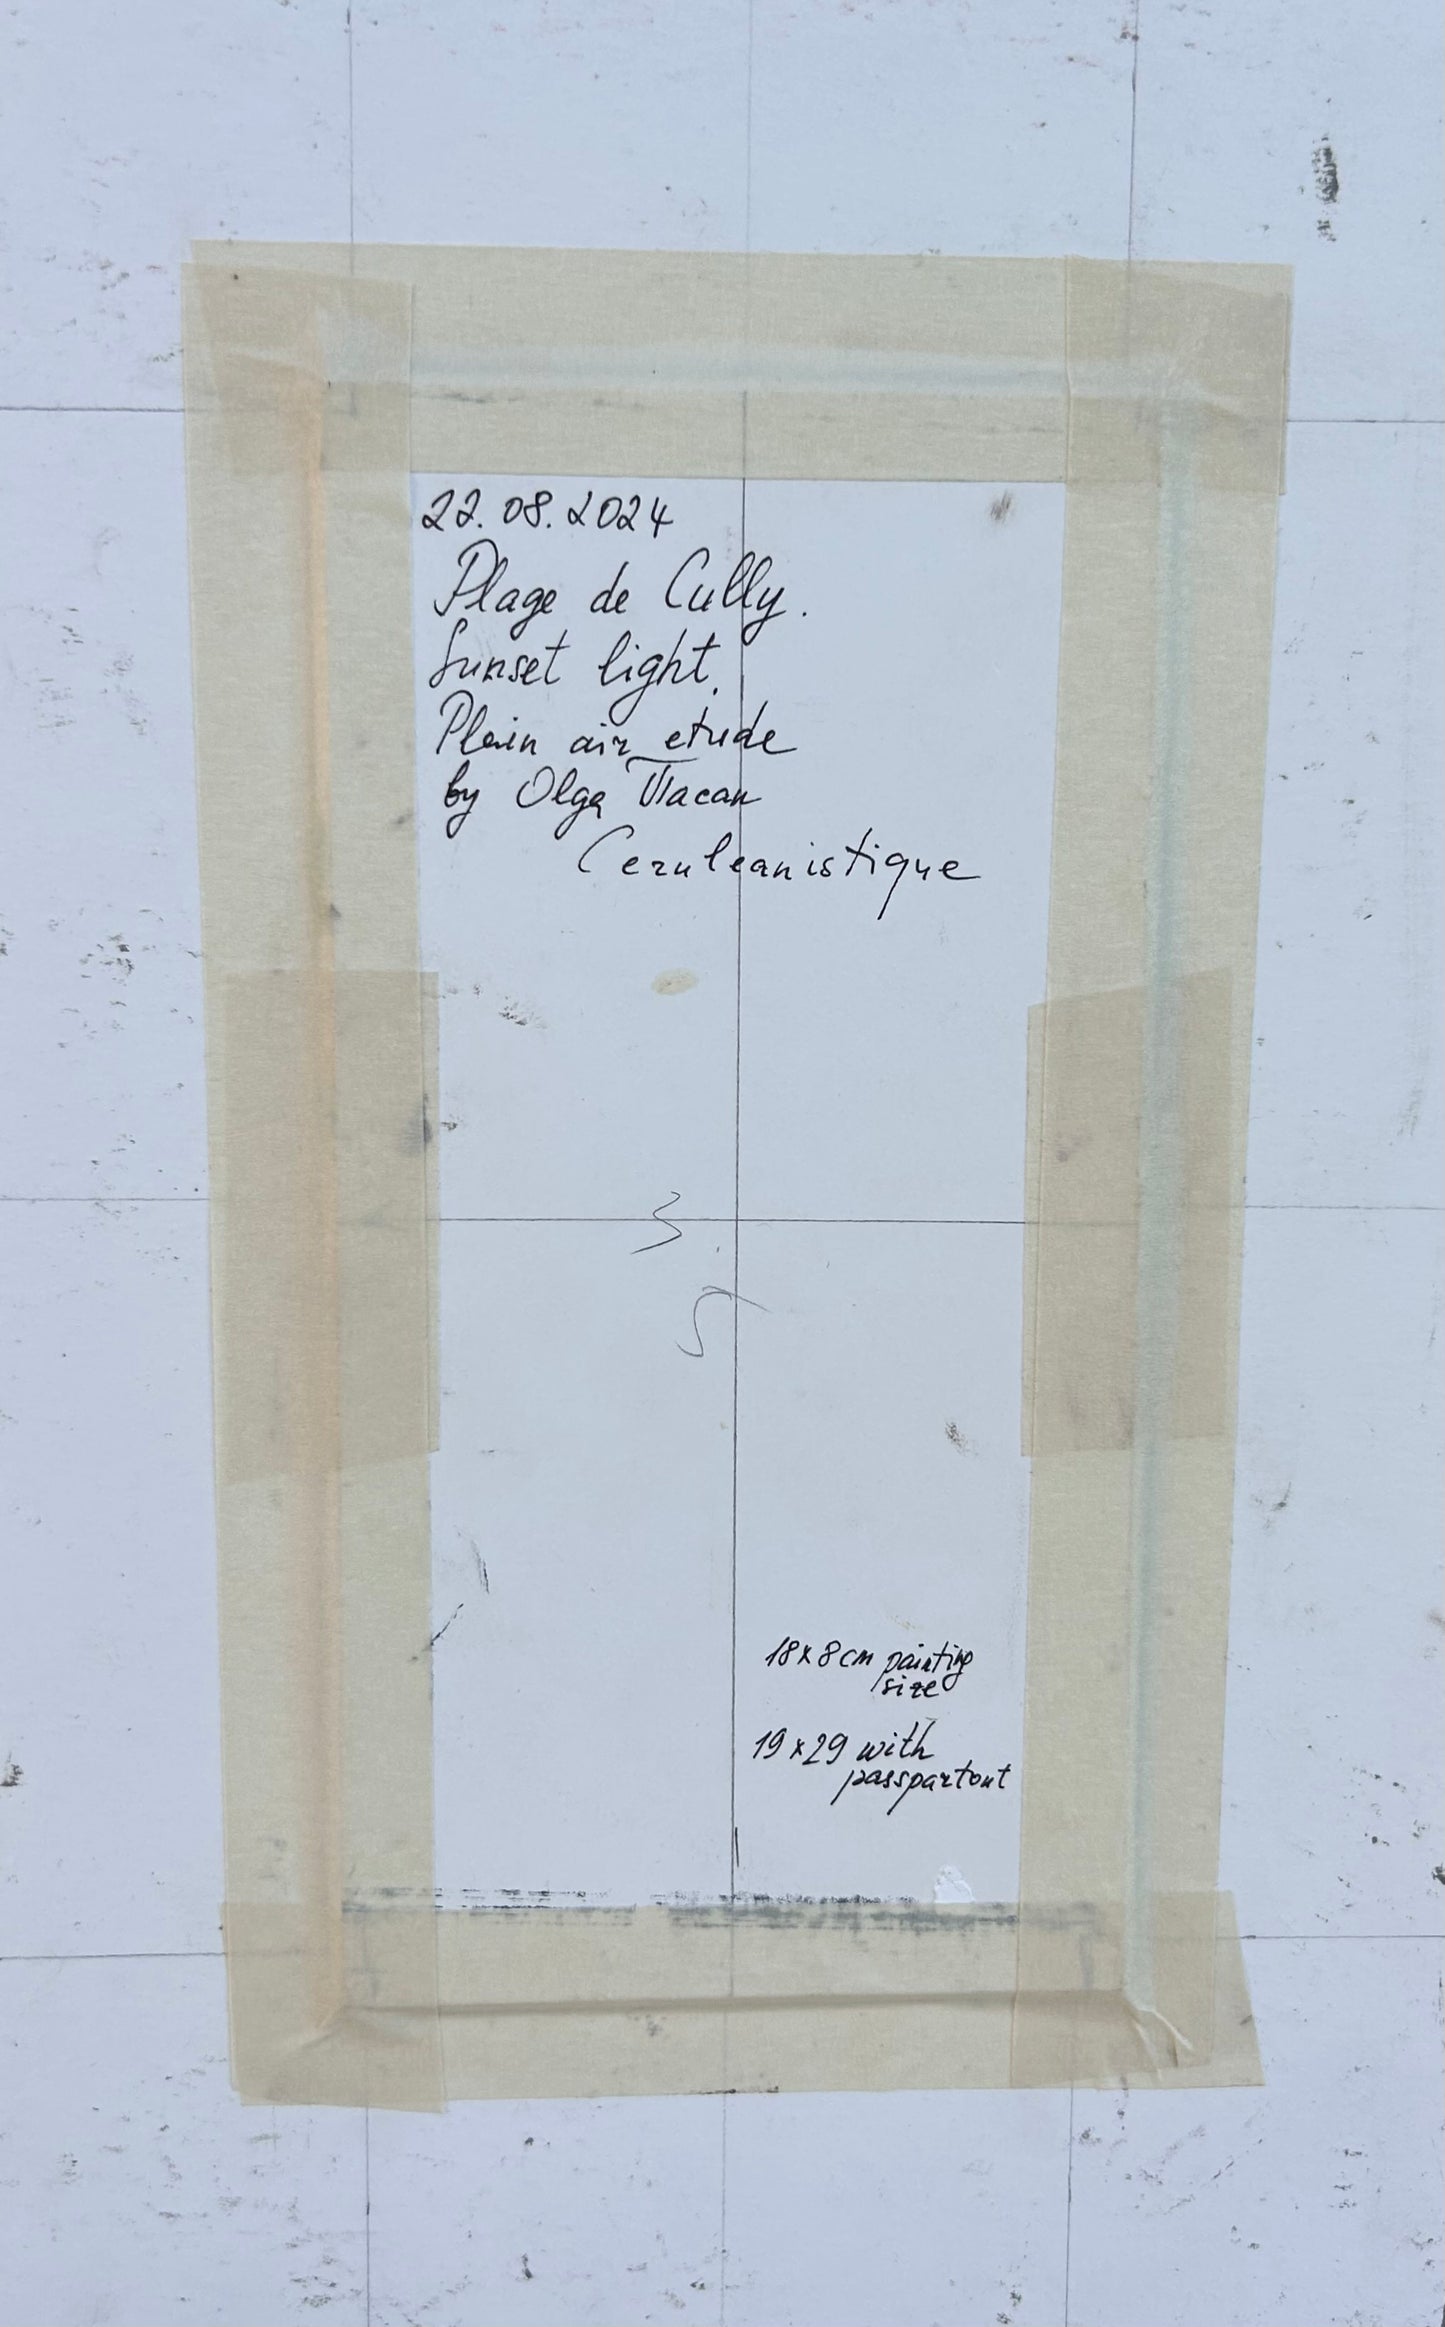 22.08.2024
Plage de Cully.
Sunset light.
Plein air etude
by Olga
Ceruleanistique
18x8cm painting
size
19x29 with
passpartout